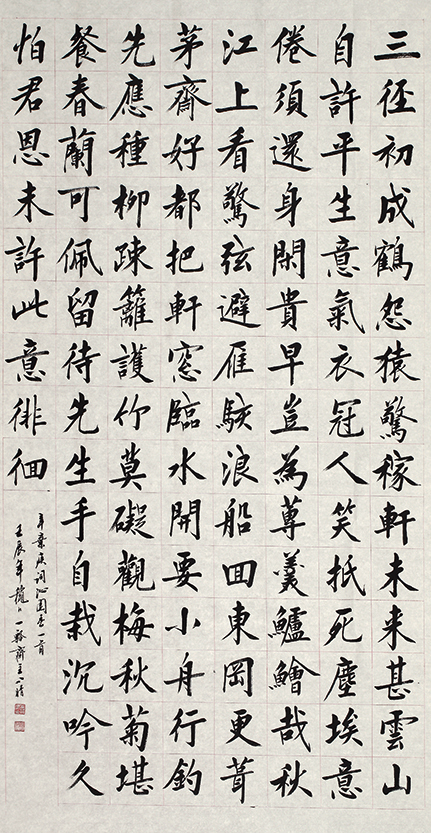 三徑初成鶴怨猿驚稼軒未来甚雲山
自許平生意氣衣冠人笑抵死塵埃意
倦須還身閑貴早豈為蓴羹鱸鱠哉秋
江上看驚弦避雁駭浪船囬東岡更葺
茅齋好都把軒窓臨水開要小舟行釣
先應種柳疎籬護竹莫礙觀梅秋菊堪
餐春蘭可佩留待先生手自栽沉吟久
怕君恩未許此意徘徊
辛棄疾詞沁園春一首
壬辰年